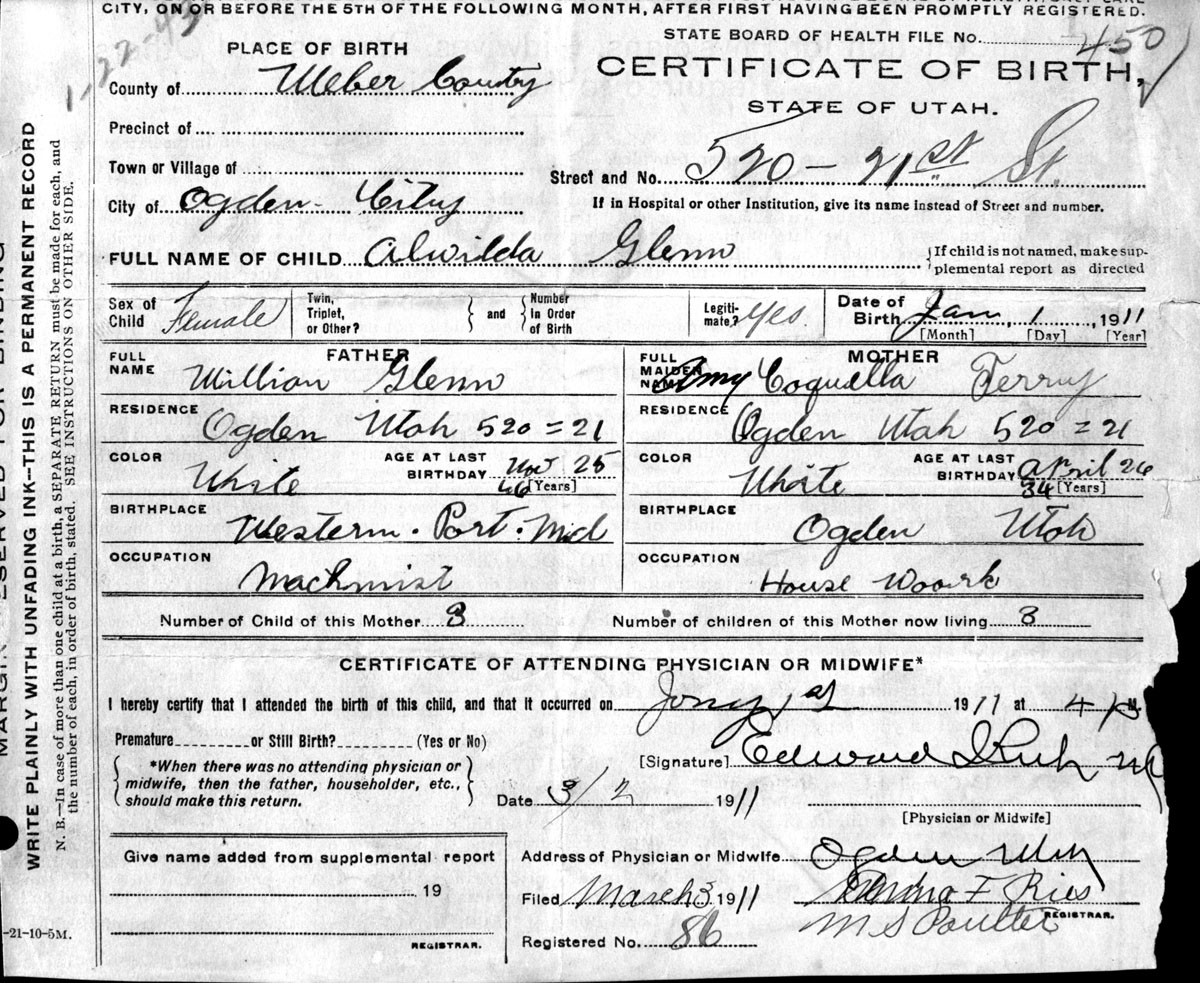 CITY, ON OR BEFORE THE 5TH OF THE FOLLOWING MONTH, AFTER FIRST HAVING BEEN PROMPTLY REGISTERED.
1-22-43
STATE BOARD OF HEALTH FILE No. 450
PLACE OF BIRTH
CERTIFICATE OF BIRTH,
STATE OF UTAH.
County of Weber County
Precinct of
Town or Village of
Street and No. 520 - 21st St.
City of Ogden City
If in Hospital or other Institution, give its name instead of Street and number.
FULL NAME OF CHILD Alwilda Glenn
{If child is not named, make sup-
plemental report as directed
Sex of Child Female
Twin, Triplet, or Other?
and
Number in Order of Birth
Legiti-mate? Yes
Date of Birth Jan, 1, 1911
[Month] [Day] [Year]
FATHER
FULL NAME Willion Glenn
RESIDENCE Ogden Utah 520 = 21
COLOR White
AGE AT LAST BIRTHDAY Nov 25 46 [Years]
BIRTHPLACE Western. Port. Md
OCCUPATION Machinist
MOTHER
FULL MAIDEN NAME Amy Coquella Terry
RESIDENCE Ogden Utah 520 = 21
COLOR White
AGE AT LAST BIRTHDAY April 26 34 [Years]
BIRTHPLACE Ogden Utah
OCCUPATION House Woork
Number of Child of this Mother 3
Number of children of this Mother now living 3
CERTIFICATE OF ATTENDING PHYSICIAN OR MIDWIFE*
I hereby certify that I attended the birth of this child, and that it occurred on Jany 1st 1911 at 4 M.
Premature or Still Birth? (Yes or No)
*When there was no attending physician or
midwife, then the father, householder, etc.,
should make this return.
[Signature] Edward
Date 3/2 1911
[Physician or Midwife]
Give name added from supplemental report
19
REGISTRAR.
Address of Physician or Midwife Ogden Utah
Filed March 3 1911
F. Ries
M S Poulter
REGISTRAR.
Registered No. 86
-21-10-5M.
WRITE PLAINLY WITH UNFADING INK--THIS IS A PERMANENT RECORD
N. B.—In case of more than one child at a birth, a SEPARATE RETURN must be made for each, and
the number of each, in order of birth, stated. SEE INSTRUCTIONS ON OTHER SIDE.